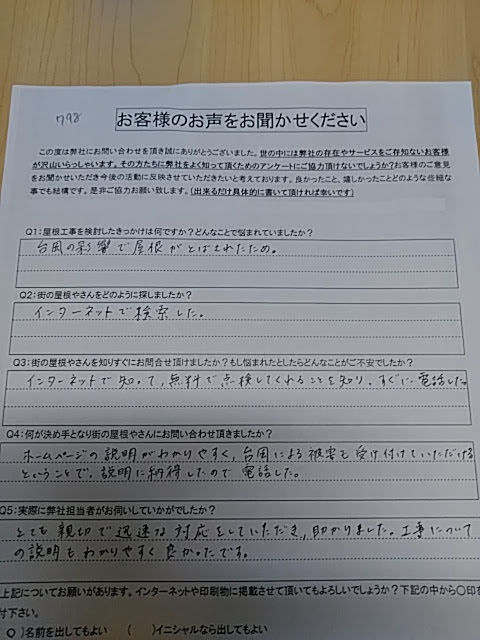 798
お客様のお声をお聞かせください
この度は弊社にお問い合わせを頂き誠にありがとうございます。世の中には弊社の存在やサービスをご存知ないお客様
が沢山いらっしゃいます。その方たちに弊社をよく知って頂くためのアンケートにご協力頂けないでしょうか?お客様のご意見
をお聞かせいただき今後の活動に反映させていただきたいと考えております。良かったこと、嬉しかったことどのような些細な
事でも結構です。是非ご協力お願い致します。(出来るだけ具体的に書いて頂ければ幸いです)
Q1:屋根工事を検討したきっかけは何ですか?どんなことで悩まれていましたか?
台風の影響で屋根がとばされたため。
Q2:街の屋根やさんをどのように探しましたか?
インターネットで検索した。
Q3:街の屋根やさんを知りすぐにお問合せ頂けましたか?もし悩まれたとしたらどんなことがご不安でしたか?
インターネットで知って、無料で点検してくれることを知り、すぐに電話した。
Q4:何が決め手となり街の屋根やさんにお問い合わせ頂きましたか?
ホームページの説明がわかりやすく、台風による被害も受け付けていただける
ということで、説明に納得したので電話した。
Q5:実際に弊社担当者がお伺いしていかがでしたか?
とても親切で迅速な対応をしていただき、助かりました。工事について
の説明もわかりやすく良かったです。
上記についてお願いがあります。インターネットや印刷物に掲載させて頂いてもよろしいでしょうか?下記の中から〇印を
付下さい。
(○)名前を出してもよい ( )イニシャルなら出してもよい